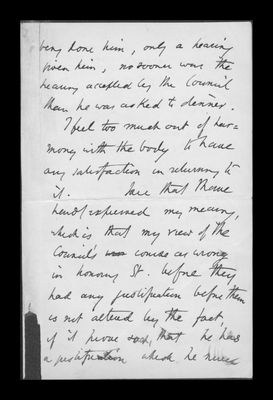 being done him, only a hearing
given him, no sooner was the
hearing accepted by the Council
than he was asked to dinner.
I feel too much out of har=
mony with the body to have
any satisfaction in returning to
it. that I have
expressed my meaning,
which is that my view of the
Council's course as wrong
in honoring St. before they
had any justification before them
is not altered by the fact,
if it prove so, that he has
a justification which he